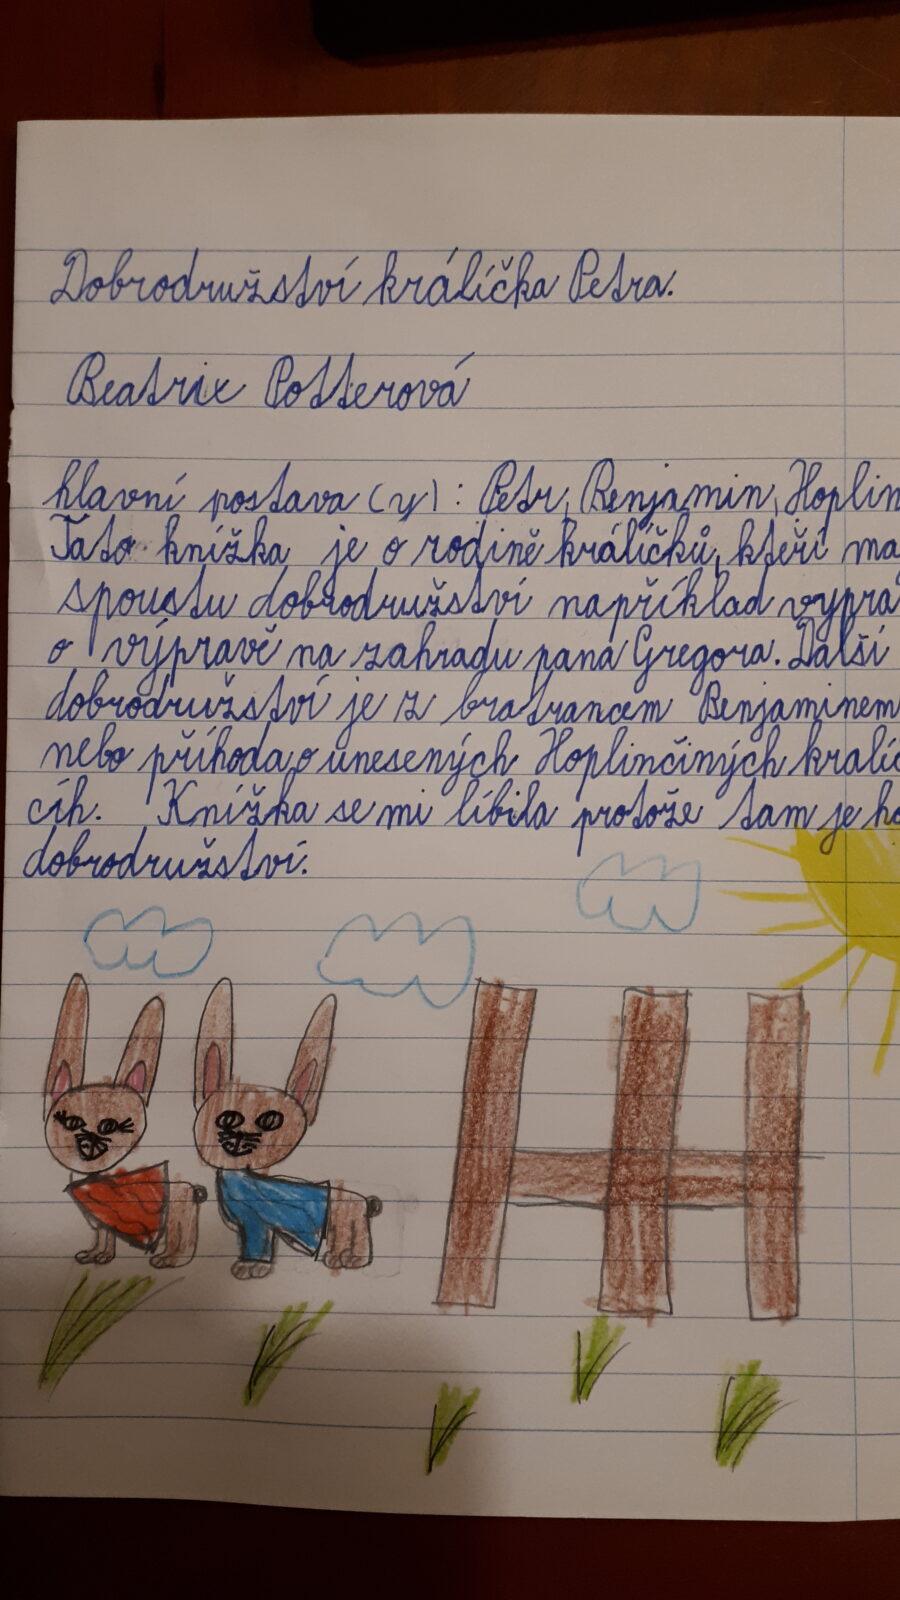 Dobrodružství králíčka Petra.
Beatrix Potterová
hlavní postava (y): Petr, Benjamin, Hoplin
Tato knížka je o rodině králíčků, kteří ma
spoustu dobrodružství například vyprá
o výpravě na zahradu pana Gregora. Další
dobrodružství je z bratrancem Benjaminem
nebo příhoda o unesených Hoplinčiných kralíč
cíh. Knížka se mi líbila protože tam je ho
dobrodružství.